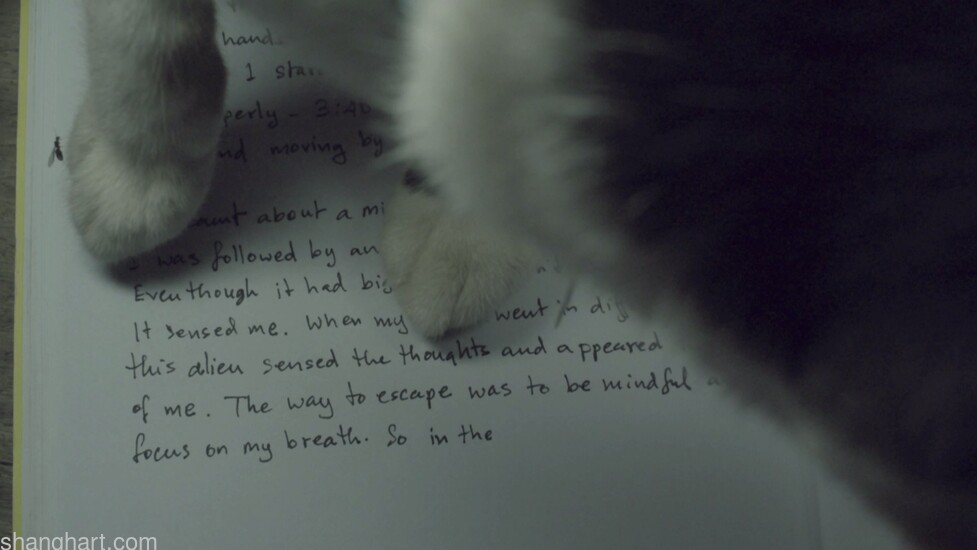 hand.
I
perly - 3:40
moving by
about a
was followed by an
Eventhough it had
It sensed me. When my went in
this alien sensed the thoughts and appeared
of me. The way to escape was to be mindful
focus on my breath. So in the
shanghart.com